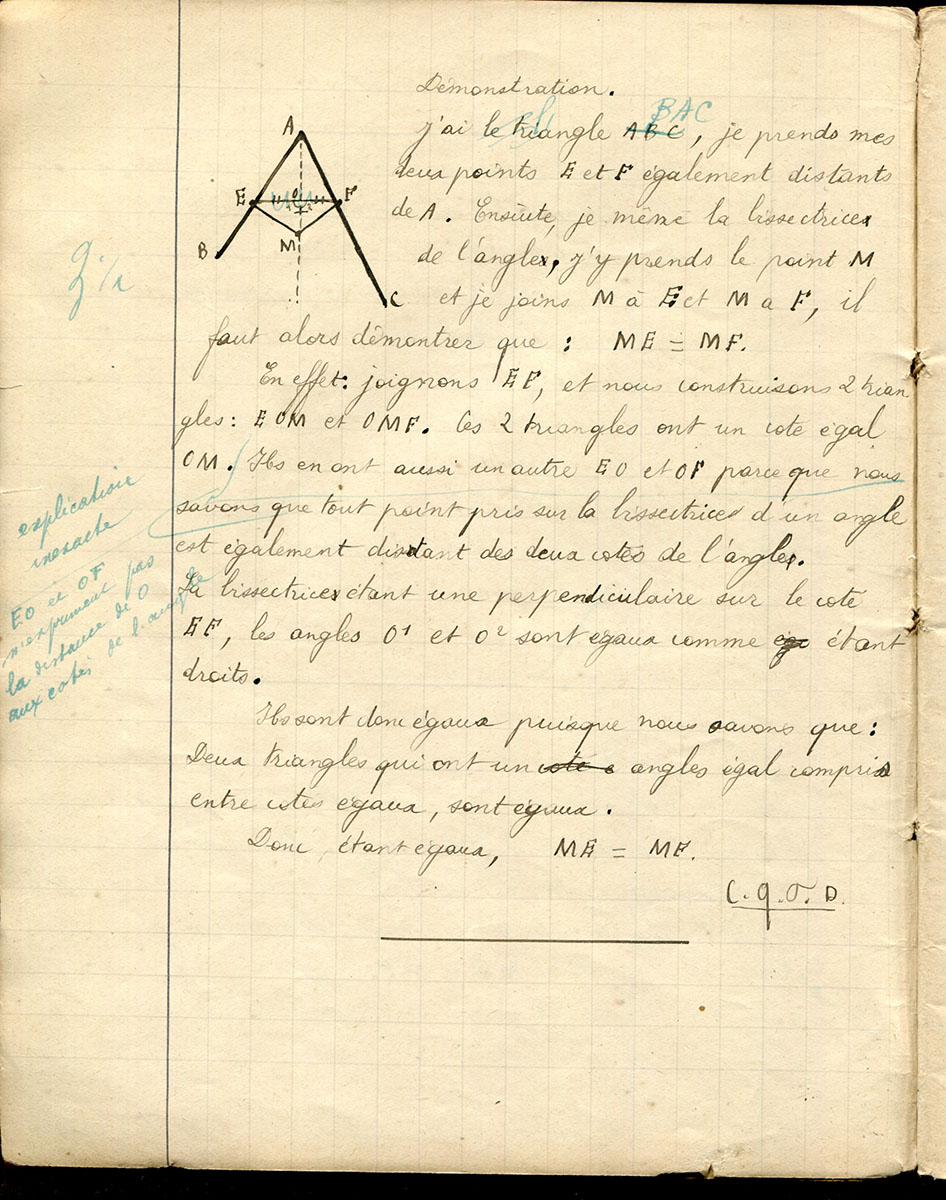 Démonstration.
J'ai le triangle ABC BAC, je prends mes
deux points E et F également distants
de A. Ensuite, je mène la bissectrice
de l'angle, j'y prends le point M
et je joins M à E et M a F, il
faut alors démontrer que : ME = MF.
En effet: joignons EF, et nous construisons 2 trian
gles: EOM et OMF. Ces 2 triangles ont un coté égal
OM. Ils en ont aussi un autre EO et OF parce que nous
savons que tout point pris sur la bissectrice d'un angle
est également distant des deux cotés de l'angle.
La bissectrice étant une perpendiculaire sur le coté
EF, les angles O1 et O2 sont egaux comme eg étant
droits.
Ils sont donc égaux puisque nous savons que :
Deux triangles qui ont un coté e angles égal compris
entre cotés egaux, sont égaux.
Donc, étant egaux, ME = MF.
C.Q.F.D.
A
E
O
F
M
B
C
explication
inexacte
EO et OF
n'expriment pas
la distance de O
aux cotés de l'angle